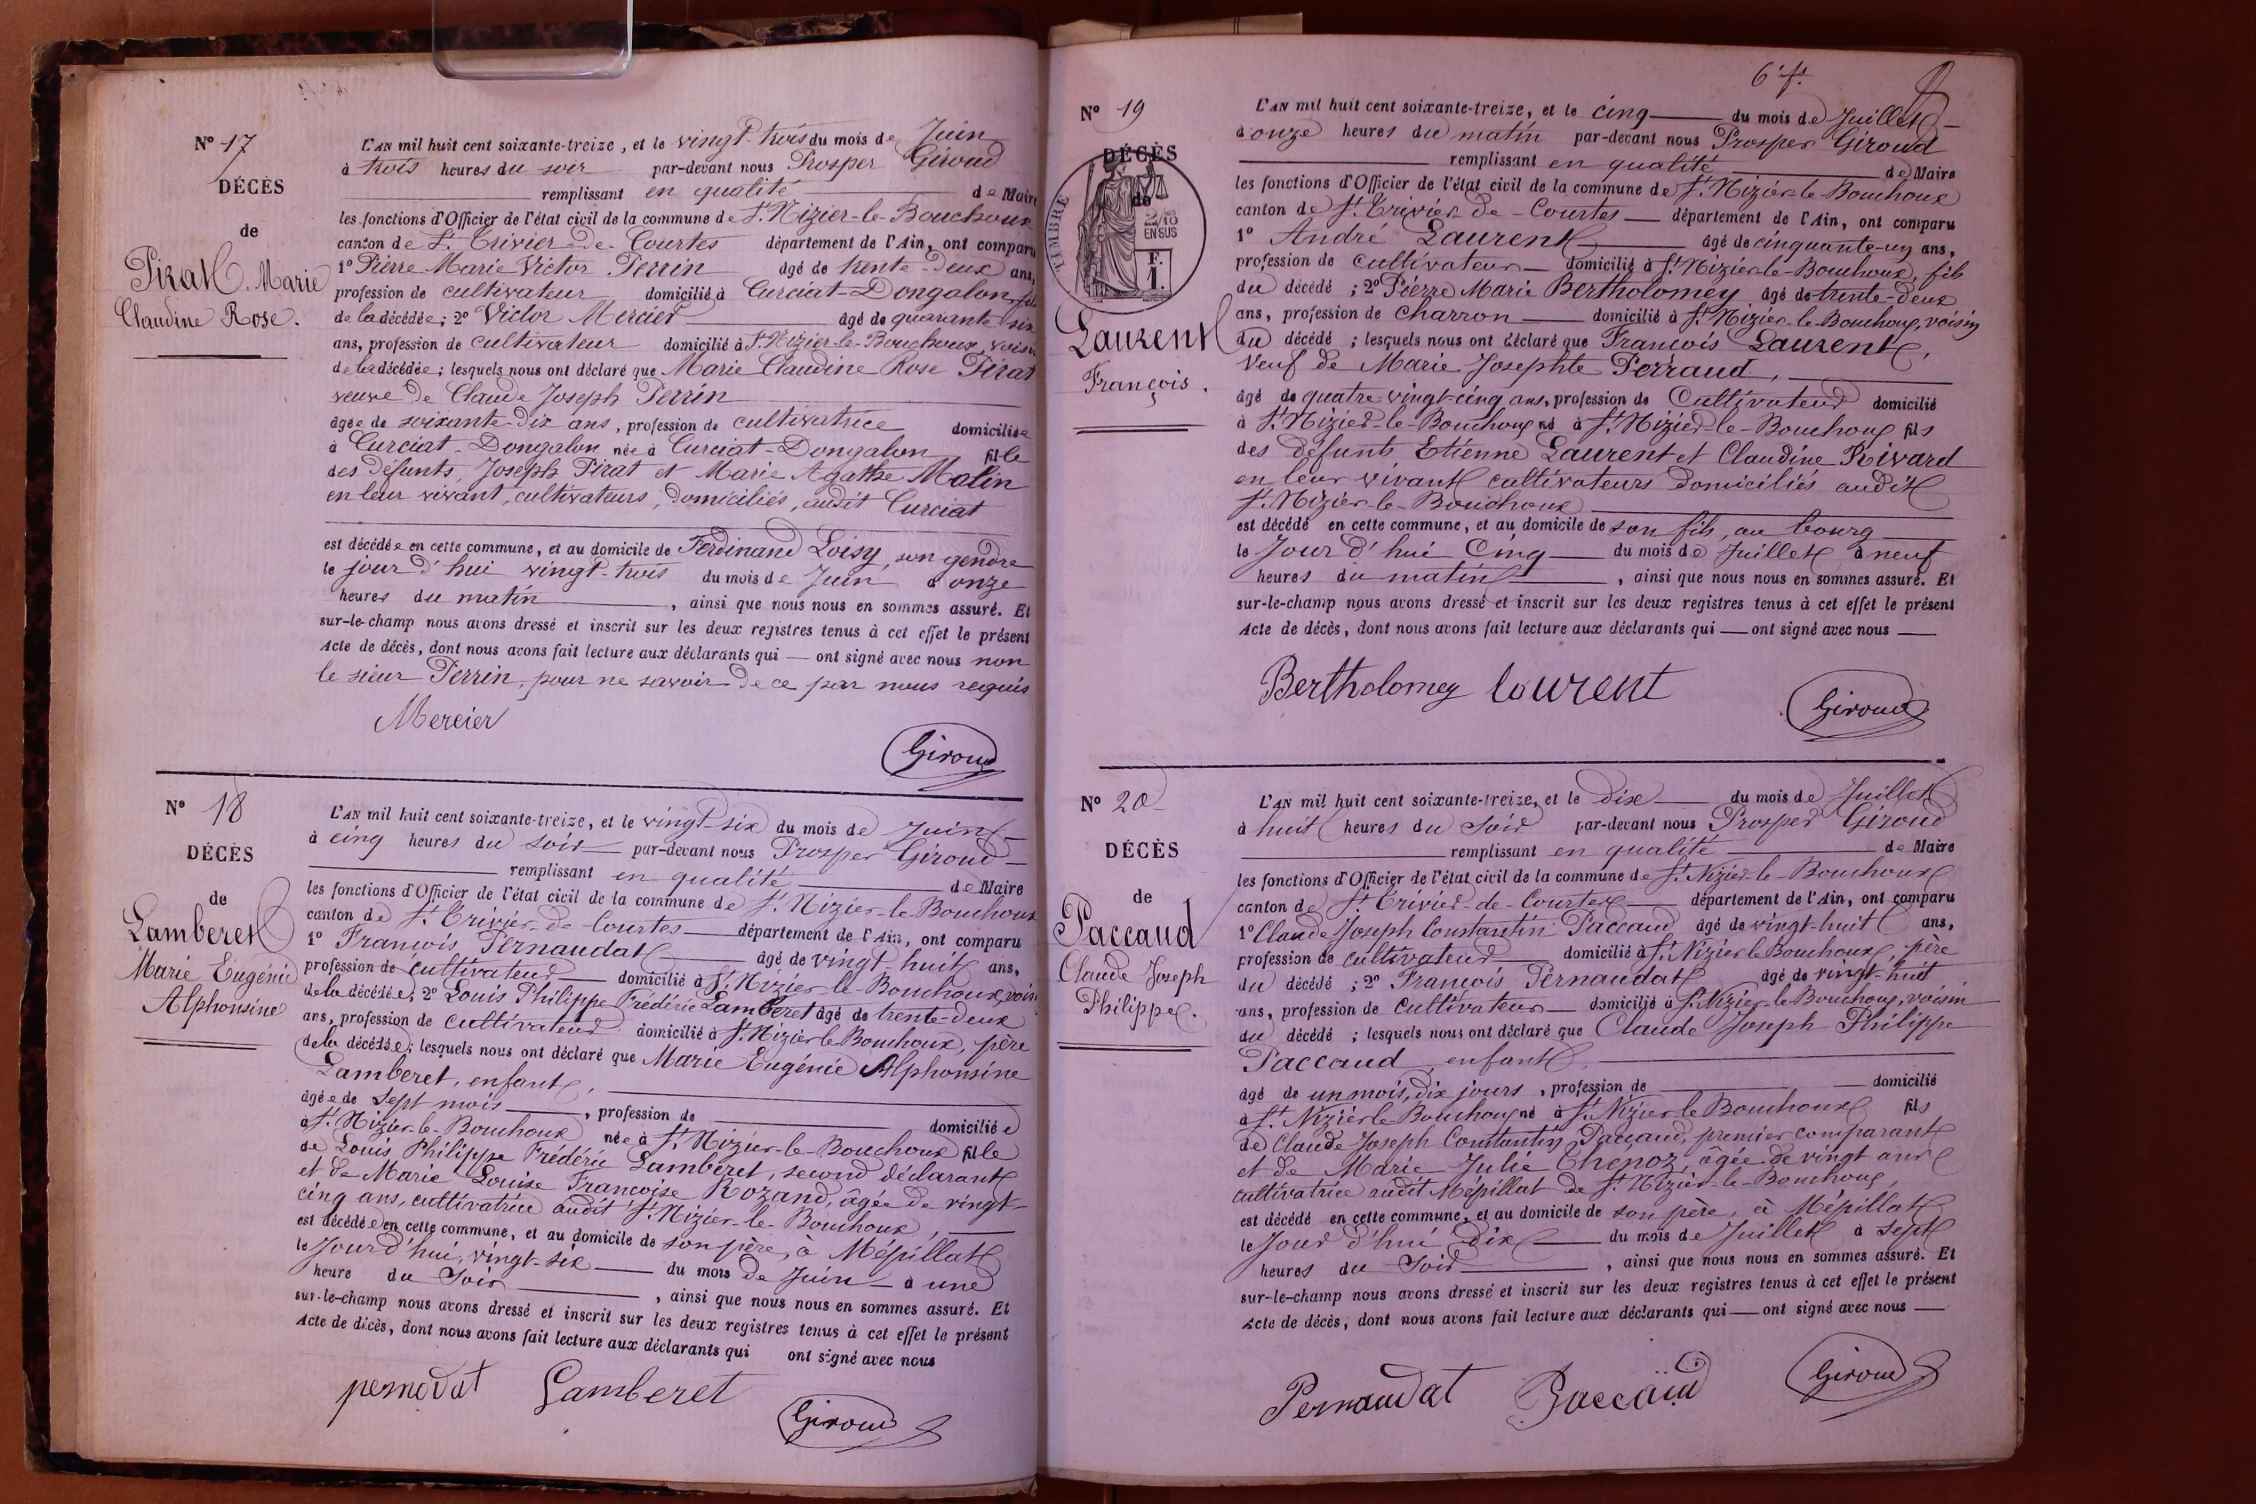 Nº 17
DÉCÈS
de
Pirat Marie
Claudine Rose.
L'AN mil huit cent soixante-treize, et le vingt-trois du mois de Juin
à trois heures du soir par-devant nous Prosper Giroud
remplissant en qualité de Maire
les fonctions d'Officier de l'état civil de la commune de St. Nizier-le-Bouchoux
canton de St. Trivier-de-Courtes département de l'Ain, ont comparu
1º Pierre Marie Victor Perrin âgé de trente-deux ans,
profession de cultivateur domicilié à Curciat-Dongalon, fils
de la décédée; 2º Victor Mercier âgé de quarante six
ans, profession de cultivateur domicilié à St. Nizier-le-Bouchoux, voisin
de la décédée; lesquels nous ont déclaré que Marie Claudine Rose Pirat
veuve de Claude Joseph Perrin
âgée de soixante-dix ans, profession de cultivatrice domiciliée
à Curciat-Dongalon née à Curciat-Dongalon fille
des défunts, Joseph Pirat et Marie Agathe Malin
en leur vivant, cultivateurs, domiciliés, audit Curciat
est décédée en cette commune, et au domicile de Ferdinand Loisy, son gendre
le jour d'hui vingt-trois du mois de Juin à onze
heures du matin, ainsi que nous nous en sommes assuré. Et
sur-le-champ nous avons dressé et inscrit sur les deux registres tenus à cet effet le présent
Acte de décès, dont nous avons fait lecture aux déclarants qui — ont signé avec nous non
le sieur Perrin, pour ne savoir de ce par nous requis
Mercier
Giroud
Nº 18
DÉCÈS
de
Lamberet
Marie Eugénie
Alphonsine
L'AN mil huit cent soixante-treize, et le vingt-six du mois de Juin
à cinq heures du soir par-devant nous Prosper Giroud
remplissant en qualité de Maire
les fonctions d'Officier de l'état civil de la commune de St. Nizier-le-Bouchoux
canton de St. Trivier-de-Courtes département de l'Ain, ont comparu
1º François Pernaudat âgé de vingt huit ans,
profession de cultivateur domicilié à St. Nizier-le-Bouchoux, voisin
de la décédée; 2º Louis Philippe Frédéric Lamberet âgé de trente-deux
ans, profession de cultivateur domicilié à St. Nizier le Bouchoux, père
de la décédée; lesquels nous ont déclaré que Marie Eugénie Alphonsine
Lamberet, enfant,
âgée de sept mois, profession de domiciliée
à St. Nizier-le-Bouchoux née à St. Nizier-le-Bouchoux fille
de Louis Philippe Frédéric Lamberet, second déclarant
et de Marie Louise Françoise Rozand, âgée de vingt-
cinq ans, cultivatrice audit St. Nizier-le-Bouchoux,
est décédée en cette commune, et au domicile de son père, à Mépillat
le Jour d'hui, vingt-six du mois de Juin à une
heure du Soir, ainsi que nous nous en sommes assuré. Et
sur-le-champ nous avons dressé et inscrit sur les deux registres tenus à cet effet le présent
Acte de décès, dont nous avons fait lecture aux déclarants qui ont signé avec nous
pernodat Lamberet
Giroud
6e ft.
Nº 19
DÉCÈS
de
TIMBRE
2/10
EN SUS
F.
1.
Laurent
François.
L'AN mil huit cent soixante-treize, et le cinq du mois de Juillet
à onze heures du matin par-devant nous Prosper Giroud
remplissant en qualité de Maire
les fonctions d'Officier de l'état civil de la commune de St. Nizier-le-Bouchoux
canton de St. Trivier-de-Courtes département de l'Ain, ont comparu
1º André Laurent âgé de cinquante-un ans,
profession de cultivateur domicilié à St. Nizier-le-Bouchoux, fils
du décédé; 2º Pierre Marie Bertholomey âgé de trente-deux
ans, profession de charron domicilié à St. Nizier-le-Bouchoux, voisin
du décédé; lesquels nous ont déclaré que François Laurent,
Veuf de Marie Josephte Perraud,
âgé de quatre vingt-cinq ans, profession de Cultivateur domicilié
à St. Nizier-le-Bouchoux né à St. Nizier-le-Bouchoux fils
des défunts Etienne Laurent et Claudine Rivard
en leur vivant cultivateurs domiciliés audit
St. Nizier-le-Bouchoux
est décédé en cette commune, et au domicile de son fils, au bourg
le Jour d'hui Cinq du mois de Juillet à neuf
heures du matin, ainsi que nous nous en sommes assuré. Et
sur-le-champ nous avons dressé et inscrit sur les deux registres tenus à cet effet le présent
Acte de décès, dont nous avons fait lecture aux déclarants qui — ont signé avec nous —
Bertholomey Lourent
Giroud
Nº 20
DÉCÈS
de
Paccaud
Claude Joseph
Philippe.
L'AN mil huit cent soixante-treize, et le dix du mois de Juillet
à huit heures du Soir par-devant nous Prosper Giroud
remplissant en qualité de Maire
les fonctions d'Officier de l'état civil de la commune de St. Nizier-le-Bouchoux
canton de St. Trivier-de-Courtes département de l'Ain, ont comparu
1º Claude Joseph Constantin Paccaud âgé de vingt-huit ans,
profession de cultivateur domicilié à St. Nizier le Bouchoux, père
du décédé; 2º François Pernaudat âgé de vingt-huit
ans, profession de cultivateur domicilié à St. Nizier-le-Bouchoux, voisin
du décédé; lesquels nous ont déclaré que Claude Joseph Philippe
Paccaud, enfant,
âgé de un mois, dix jours, profession de domicilié
à St. Nizier le Bouchoux né à St. Nizier le Bouchoux fils
de Claude Joseph Constantin Paccaud, premier comparant
et de Marie Julie Thenoz, âgée de vingt ans
cultivatrice audit Mépillat de St. Nizier-le-Bouchoux,
est décédé en cette commune, et au domicile de son père, à Mépillat
le Jour d'hui dix du mois de Juillet à sept
heures du Soir, ainsi que nous nous en sommes assuré. Et
sur-le-champ nous avons dressé et inscrit sur les deux registres tenus à cet effet le présent
Acte de décès, dont nous avons fait lecture aux déclarants qui — ont signé avec nous —
Pernaudat Paccaud
Giroud